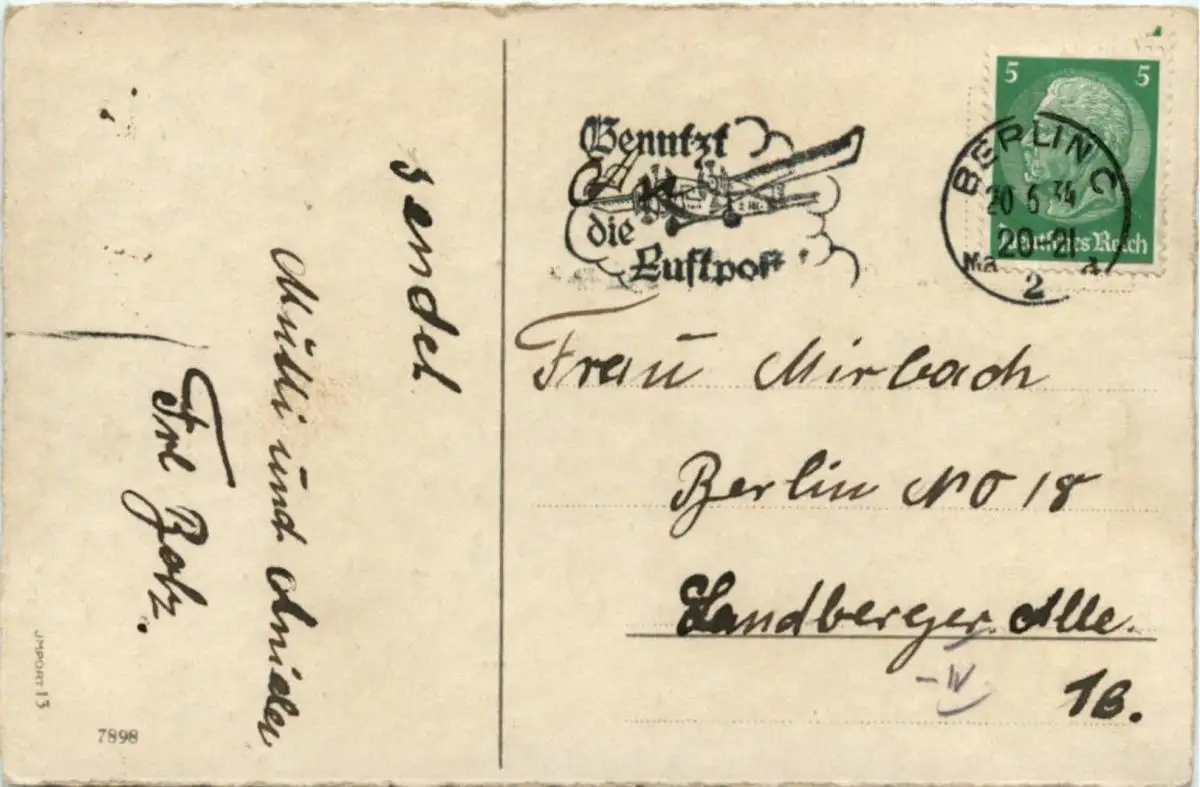 sendet
Mutti und
Frl
JMPORT 13
7898
Benutzt
die
Luftpost
5 5
Deutsches Reich
BERLIN C
20 6 34
20-21
2
Frau Mirbach
Berlin NO 18
Landberger. Alle.
-IV
1B.